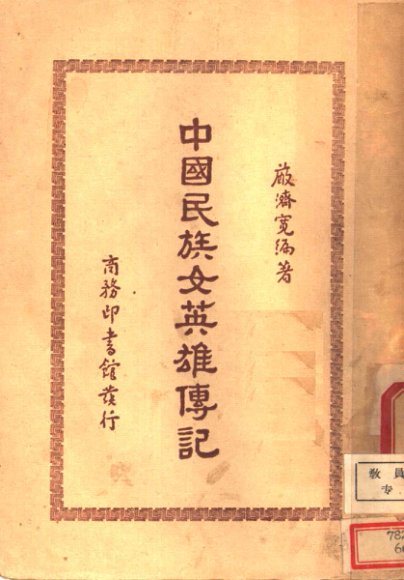 嚴濟寬編著
中國民族女英雄傳記
商務印書館發行
教員
专
78
6